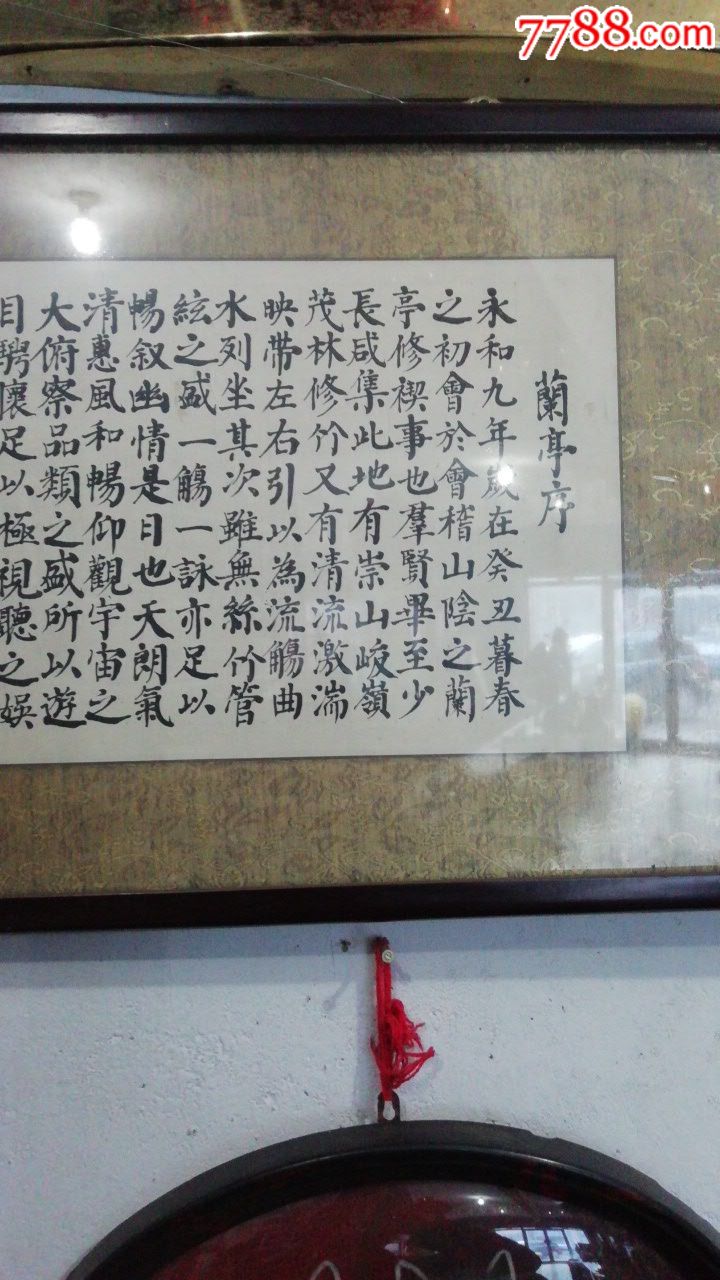 7788.com
蘭亭序
永和九年歲在癸丑暮春
之初會於會稽山陰之蘭
亭修禊事也羣賢畢至少
長咸集此地有崇山峻嶺
茂林修竹又有清流激湍
映带左右引以為流觴曲
水列坐其次雖無絲竹管
絃之盛一觴一詠亦足以
暢叙幽情是日也天朗氣
清惠風和暢仰觀宇宙之
大俯察品類之盛所以遊
目騁懷足以極視聽之娛